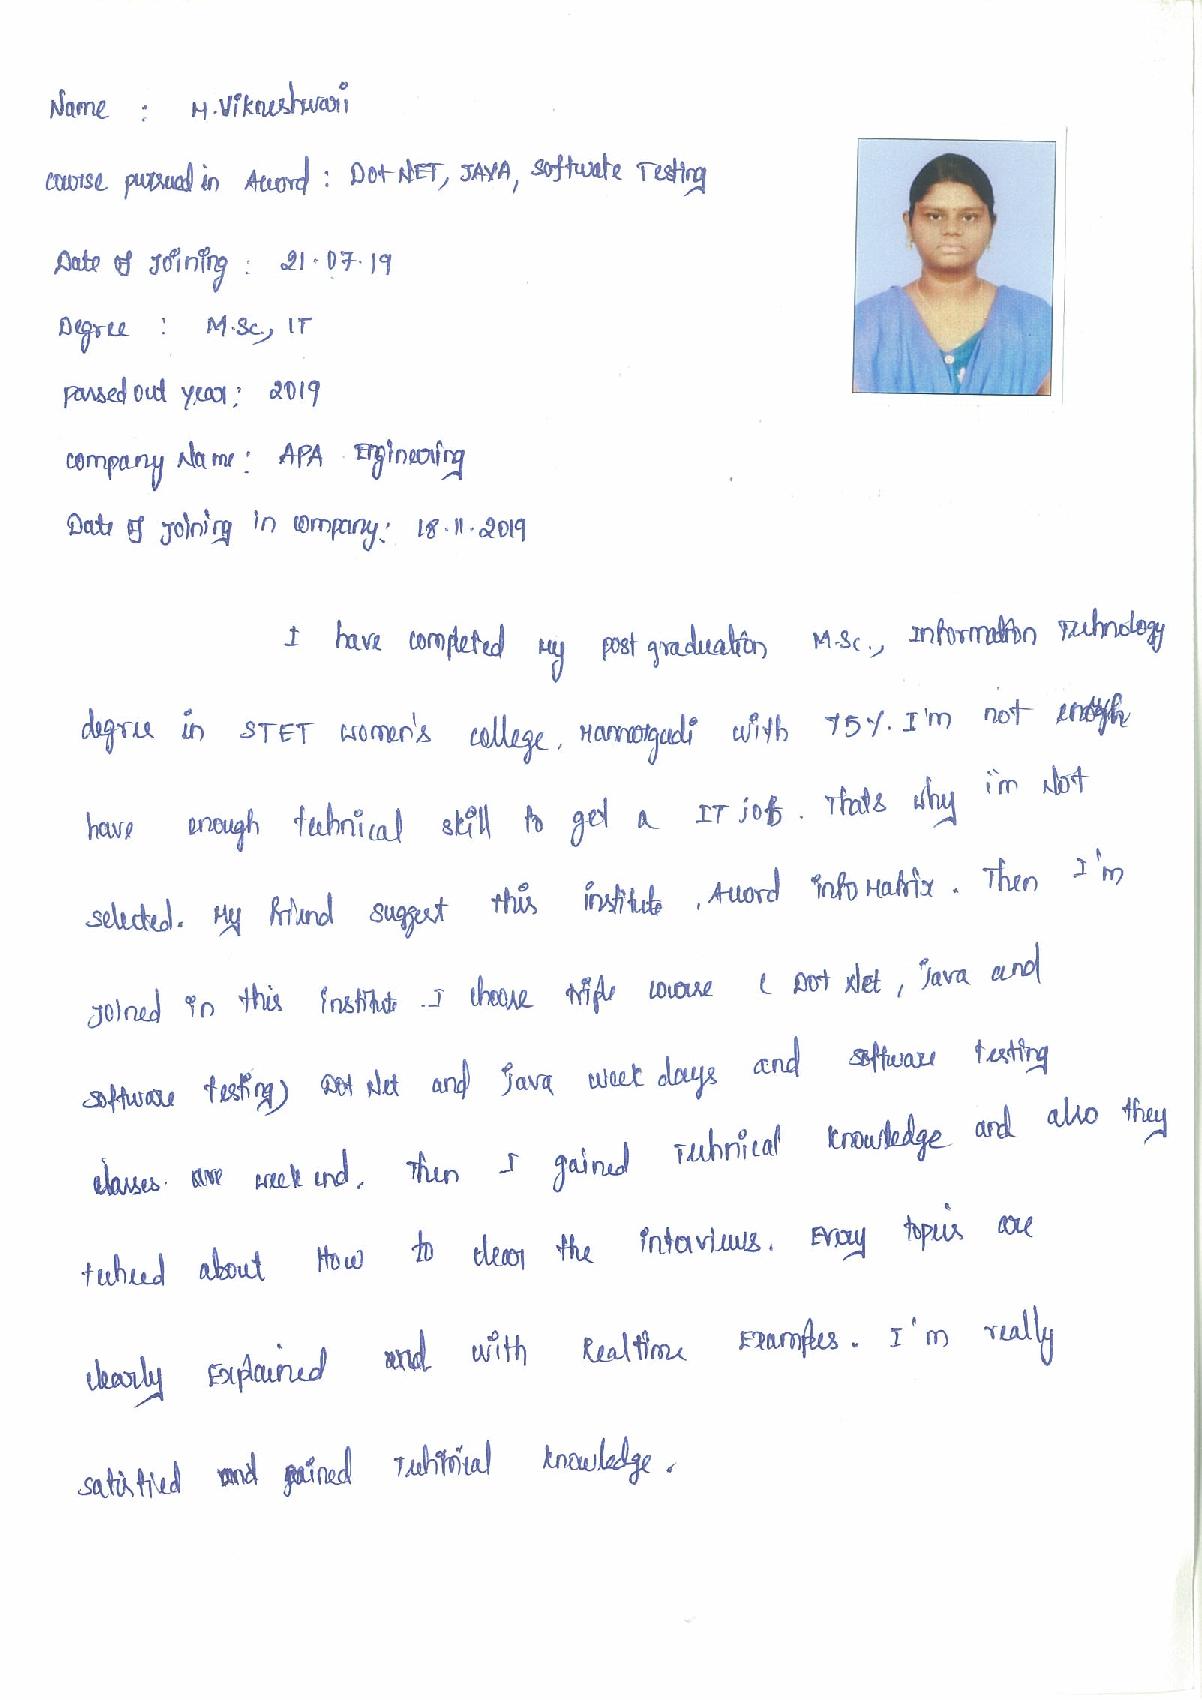 Name : M.Vikneshwari
course pursued in Accord : Dot NET, JAVA, Software Testing
Date of Joining : 21.07.19
Degree : M.Sc., IT
passed out year : 2019
company Name : APA Engineering
Date of joining in company : 18.11.2019
I have completed My post graduation M.Sc., Information Technology
degree in STET women's college, Mannargudi with 75%. I'm not enough
have enough technical skill to get a IT job. Thats why i'm Not
selected. My friend suggest this institute, Accord info Matrix. Then I'm
joined in this institute. I choose triple course ( Dot Net, java and
software testing) Dot Net and java week days and software testing
classes are week end. Then I gained Technical knowledge and also they
teched about How to clear the interviews. Every topics are
clearly Explained and with Realtime Examples. I'm really
satisfied and gained Technical knowledge.